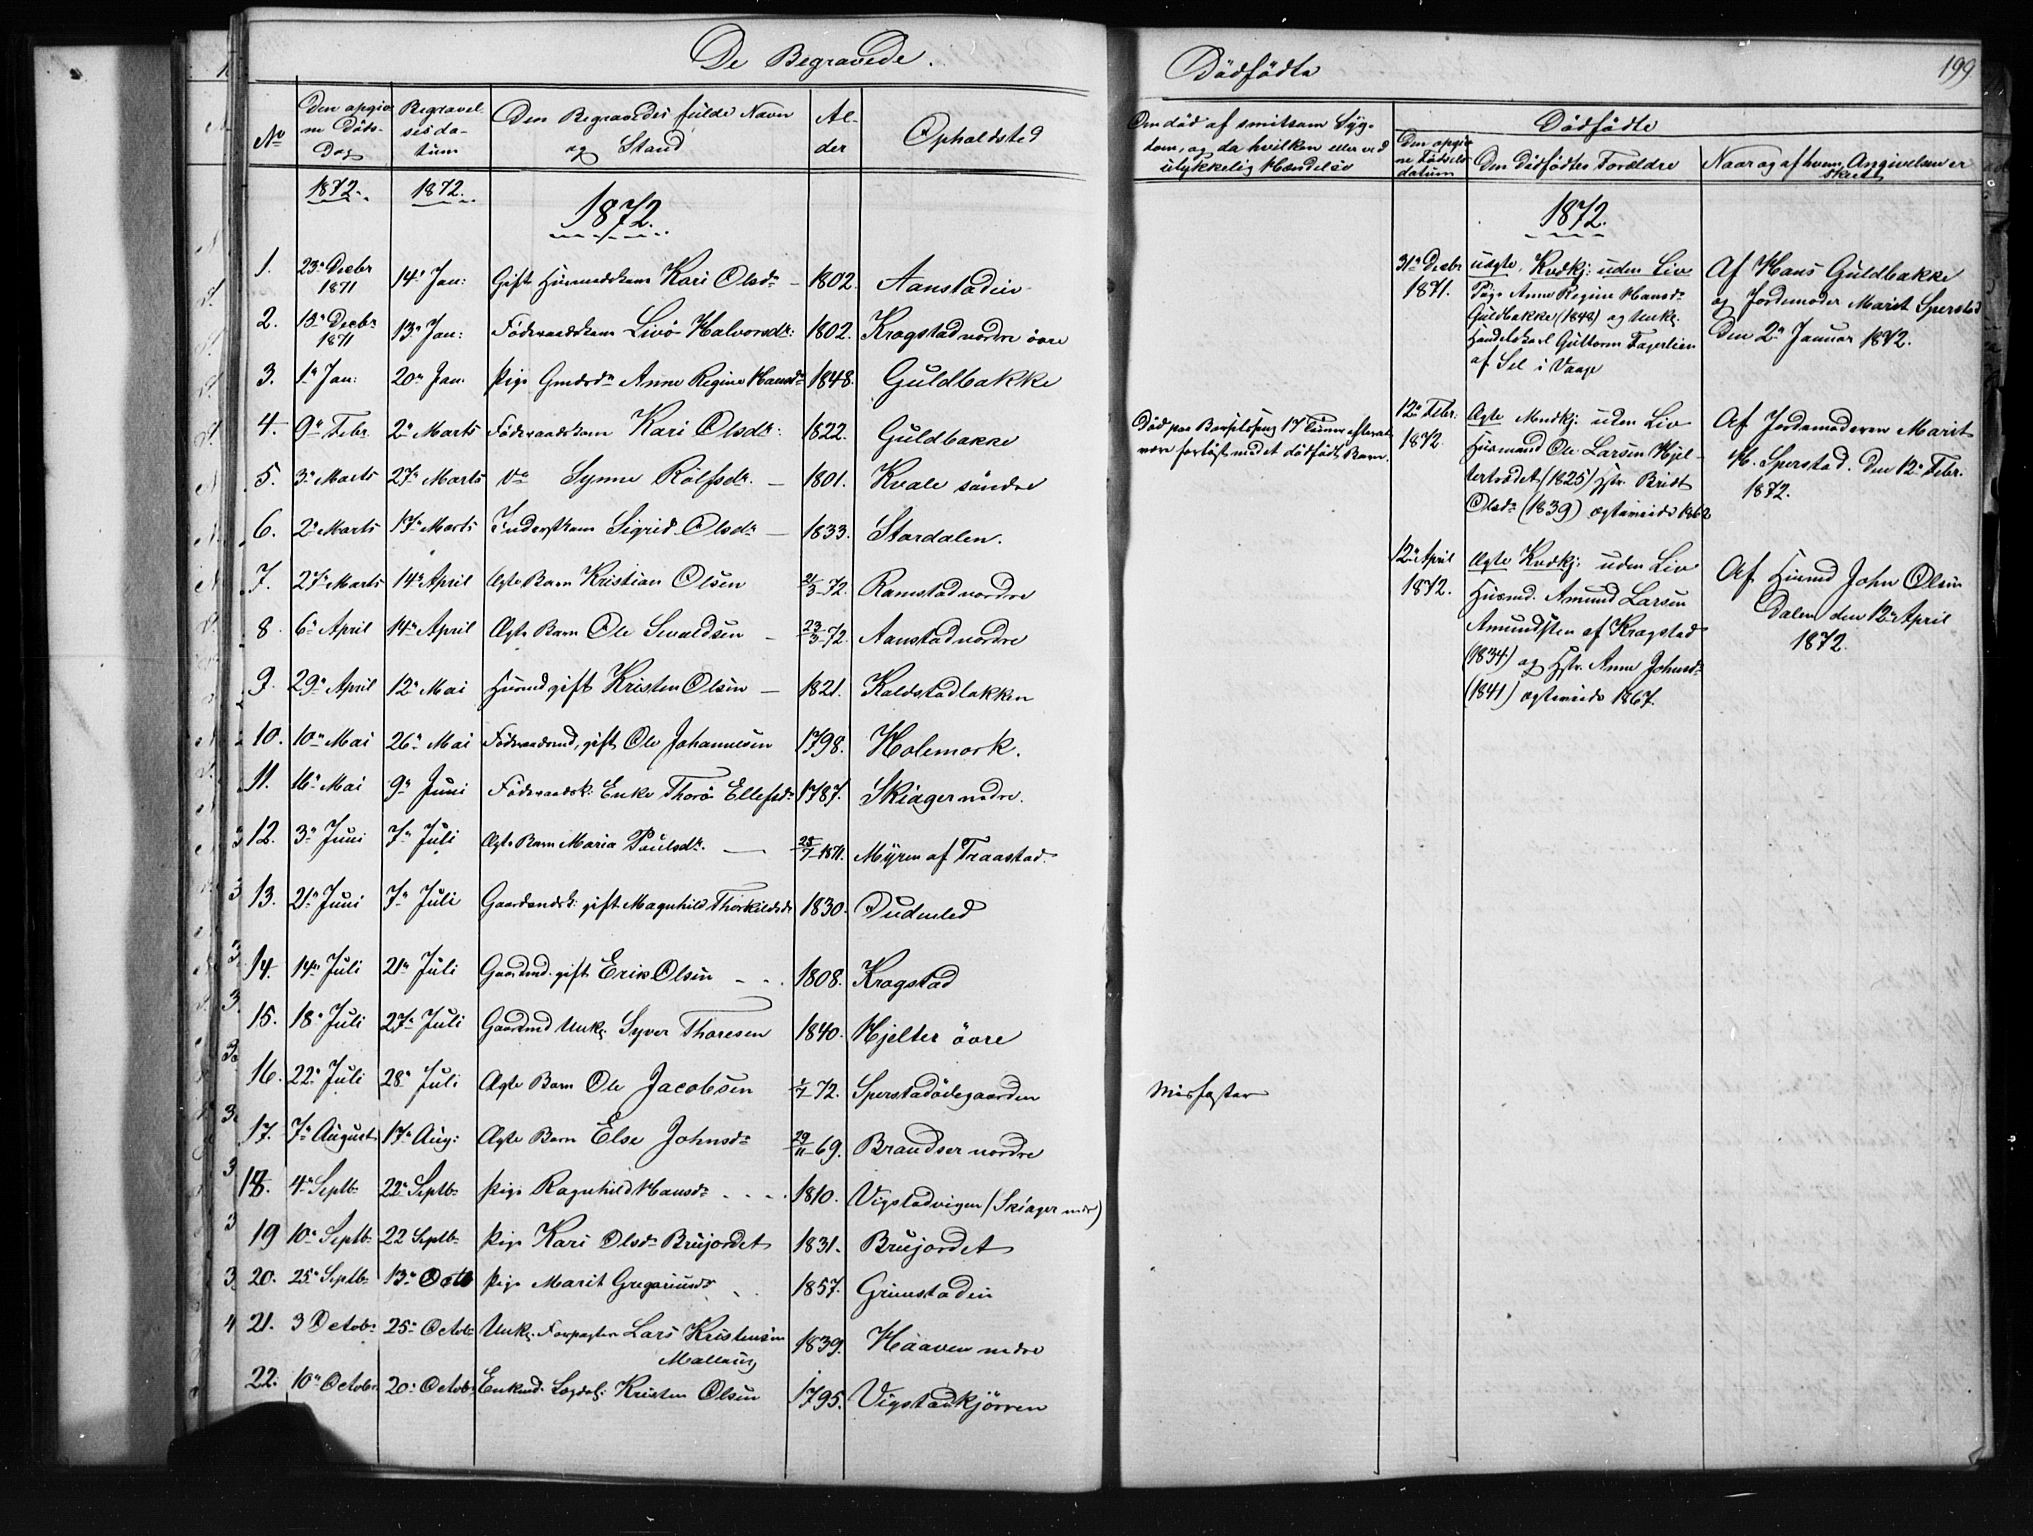 De Begravede.
No
Den opgivne Døds-Dag
Begravelsesdatum
Den Begravedes fulde Navn og Stand
Alder
Opholdsted
1872. 1872.
1872.
1. 23de Decbr 1871 14de Jan: Gift Huusmandskone Kari Olsdr 1802. Aanstadeie
2. 19de Decbr 1871 13de Jan: Føderaadskone Livø Halvorsdr: 1802. Kragstad nordre øvre
3. 1de Jan: 20de Jan. Pige Gmdsdr Anne Regine Hansdr 1848. Guldbakke
4. 9de Febr. 2de Marts Føderaadskone Kari Olsdr: 1822. Guldbakke
5. 3de Marts 27de Marts do Synne Rolfsdr. 1801. Kvale søndre
6. 2de Marts 17de Marts Inderstkone Sigrid Olsdr 1833. Stordalen.
7. 27de Marts 14de April Ægte Barn Kristian Olsen 2/3-72. Ramstad nordre
8. 6de April 14de April Ægte Barn Ole Sivaldsen 23/3-72. Aanstad nordre
9. 29de April 12de Mai Husmd gift Kristen Olsen 1821. Kaldstadløkken
10. 10de Mai 26de Mai Føderaadsmd, gift Ole Johannesen 1798. Holemork.
11. 16de Mai 9de Juni Føderaadsk: Enke Thorø Ellefsdr 1787. Skiager nedre.
12. 3de Juni 7de Juli Ægte Barn Maria Paulsdr. 28/7-1871. Myren af Traastad.
13. 21de Juni 7de Juli Gaardmdsk: gift Magnhild Thorkildsdr 1830. Dudusled
14. 14de Juli 21de Juli Gaardmd. gift Erik Olsen 1808. Kragstad
15. 18de Juli 27de Juli Gaardmd Unk. Syver Thoresen 1840. Hjelter øvre
16. 22de Juli 28de Juli Ægte Barn Ole Jacobsen 1/7-72. Sperstadødegaarden
17. 7de August 17de Aug: Ægte Barn Else Johnsdr 29/11-69. Brandser nordre
18. 4de Septb. 22de Septb. Pige Ragnhild Hansdr 1810. Vigstadvigen (Skiager ndr)
19 10de Septb. 22 Septb. Pige Kari Olsdr Brujordet 1831. Brujordet
20. 25de Septb. 13de Octb Pige Marit Gregariusdr 1857. Grimstadeie
21. 3 Octobr 25de Octobr Unk. Forpagter Lars Kristensen Mallaug 1839. Haaven nedre
22. 10de Octobr. 20de Octobr. Enkemd. Lægdsl: Kristen Olsen 1795. Vigstadkjørren
Dødfødte
199
Om død af smitsom Syg-
dom, og da hvilken eller ved
ulykkelig Hændelse
Dødfødte
Den opgivne Fødselsdatum
Den Dødfødtes Forældre
Naar og af hvem Angivelsen er skeet
1872.
31de Decbr 1871.
uægte, Kvdkj: uden Liv
Pige Anne Regine Hansdr
Guldbakke (1848) og Unk.
Handelskarl Guttorm Fagerlien
af Sel i Vaage
Af Hans Guldbakke
og Jordemoder Marit Sperstad
den 2de Januar 1872.
Død paa Barselseng 17 Timer efterat
være forløst med et dødfødt Barn.
12te Febr: 1872.
Ægte Mndkj: uden Liv
Husmand Ole Larsen Hjel-
tertrødet (1825) Hstr. Britt
Olsdr (1839) ægteviede 1862
Af Jordemoderen Marit
H. Sperstad. den 12te Febr.
1872.
12te April 1872.
Ægte Kvdkj: uden Liv
Husmd. Amund Larsen
Amundsten af Kragstad
(1834) og Hstr. Anne Johnsdr
(1841) ægteviede 1867.
Af Husmd John Olsen
Dalen den 12te April
1872.
Misfoster